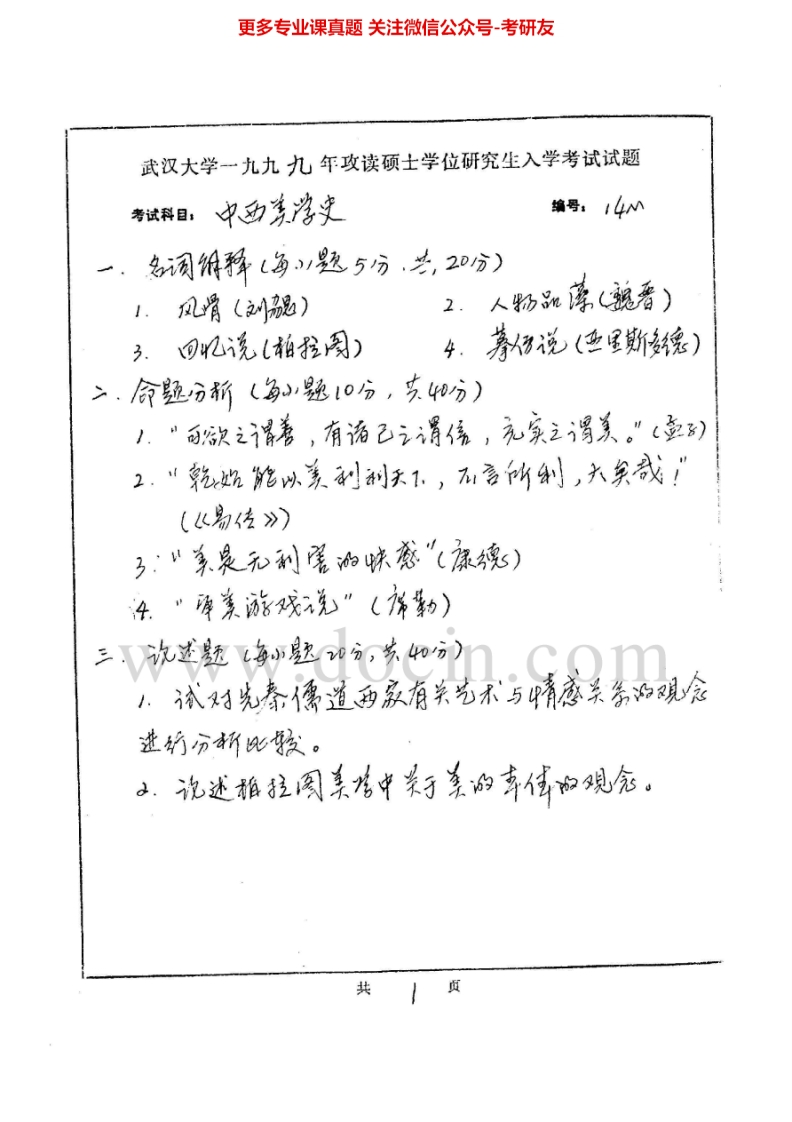 更多专业课真题 关注微信公众号-考研友
武汉大学一九九九年攻读硕士学位研究生入学考试试题
考试科目：中西美学史 编号：14M
一．名词解释（每小题5分，共20分）
1．风骨（刘勰） 2．人物品藻（魏晋）
3．回忆说（柏拉图） 4．摹仿说（亚里斯多德）
二．命题分析（每小题10分，共40分）
1．“可欲之谓善，有诸己之谓信，充实之谓美。”（孟子）
2．“乾始能以美利利天下，不言所利，大矣哉！”
（《易传》）
3．“美是无利害的快感”（康德）
4．“审美游戏说”（席勒）
www.docin.com
三．论述题（每小题20分，共40分）
1．试对先秦儒道两家有关艺术与情感关系的观念
进行分析比较。
2．论述柏拉图美学中关于美的本体的观念。
共 1 页